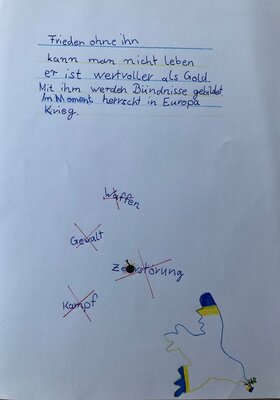 Frieden ohne ihn
kann man nicht leben
er ist wertvoller als Gold.
Mit ihm werden Bündnisse gebildet.
Im Moment herrscht in Europa
Krieg.
Waffen
Gewalt
Zerstörung
Kampf